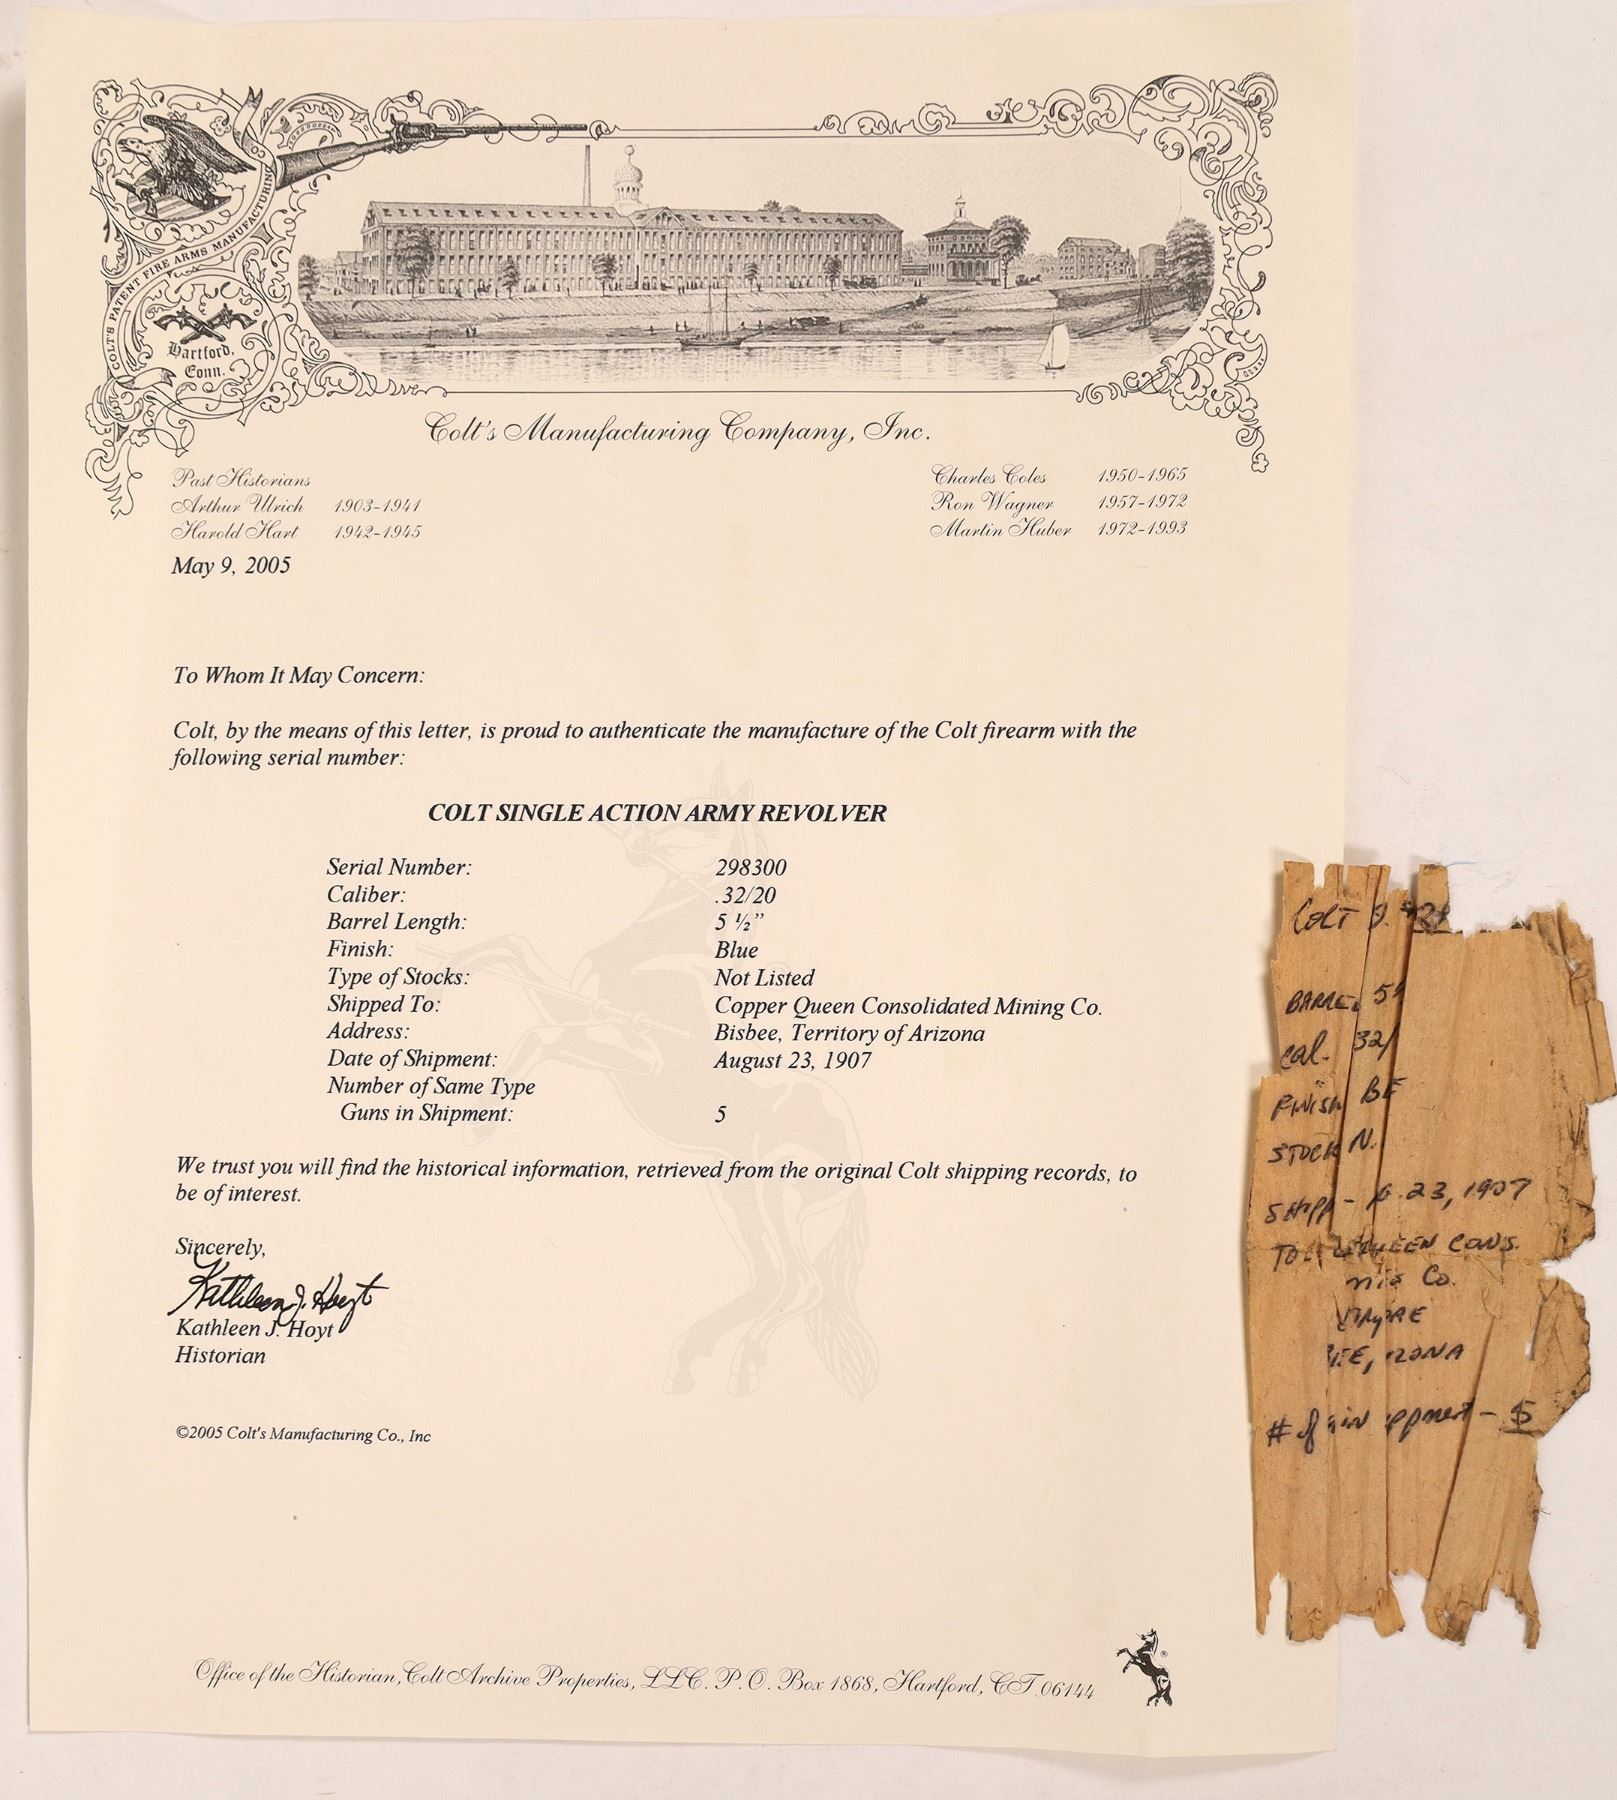 COLT'S PATENT FIRE ARMS MANUFACTURING CO
Hartford,
Conn.
Colt's Manufacturing Company, Inc.
Past Historians
Arthur Ulrich 1903-1941
Harold Hart 1942-1945
Charles Coles 1950-1965
Ron Wagner 1957-1972
Martin Huber 1972-1993
May 9, 2005
To Whom It May Concern:
Colt, by the means of this letter, is proud to authenticate the manufacture of the Colt firearm with the
following serial number:
COLT SINGLE ACTION ARMY REVOLVER
Serial Number: 298300
Caliber: .32/20
Barrel Length: 5 ½”
Finish: Blue
Type of Stocks: Not Listed
Shipped To: Copper Queen Consolidated Mining Co.
Address: Bisbee, Territory of Arizona
Date of Shipment: August 23, 1907
Number of Same Type
Guns in Shipment: 5
We trust you will find the historical information, retrieved from the original Colt shipping records, to
be of interest.
Sincerely,
Kathleen J. Hoyt
Kathleen J. Hoyt
Historian
©2005 Colt's Manufacturing Co., Inc
Office of the Historian, Colt Archive Properties, LLC. P.O. Box 1868, Hartford, CT 06144
COLT
BARREL 5
cal. 32/
FINISH
STOCK N.
SHIPP - 23, 1907
TO QUEEN CONS.
Co.
# of in - 5